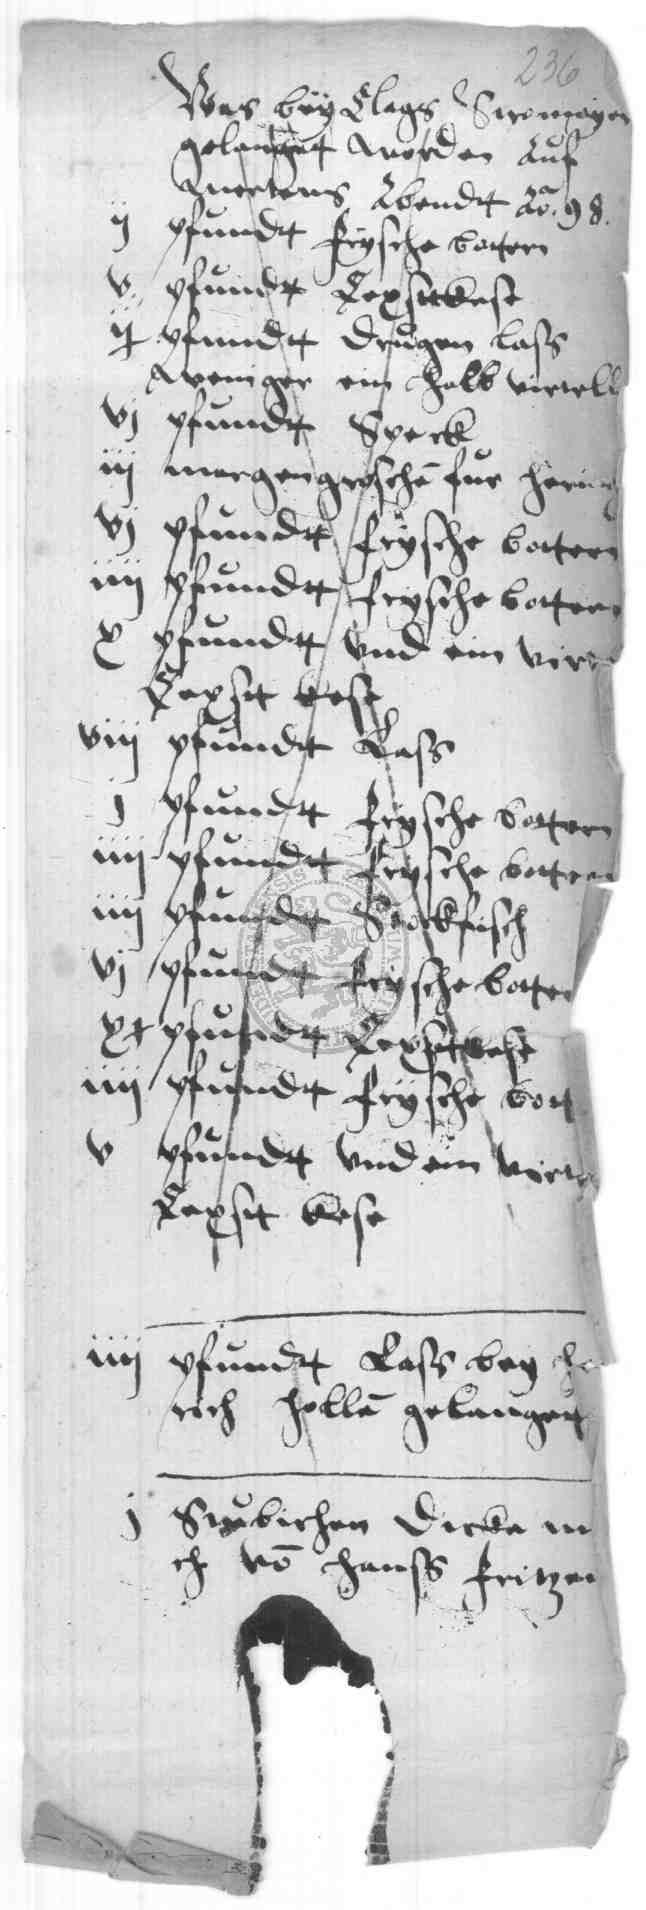 236
Was bey Clags Stromeyer
gelanget worden Auf
Mertens Abendt Ao. 98.
ij pfundt frysche bottern
v pfundt Repsitkese
ij pfundt drugen lass
weniger ein halb virtell
vj pfundt Speck
iij mariengroschē fur hering
vj pfundt frysche bottern
iiij pfundt frysche bottern
x pfundt vnd ein virt
Repsit kese
viij pfundt Lass
j pfundt frysche bottern
iiij pfundt frysche bottern
iiij pfundt Stockfisch
vj pfundt frysche botter
pfundt Repsitkese
iiij pfundt frysche bott
v pfundt vnd ein virt
Repsit kese
iiij pfundt Lass bey he
rich hollē gelanget
j Stubichen Dicke m
ch vō hanss fritzen